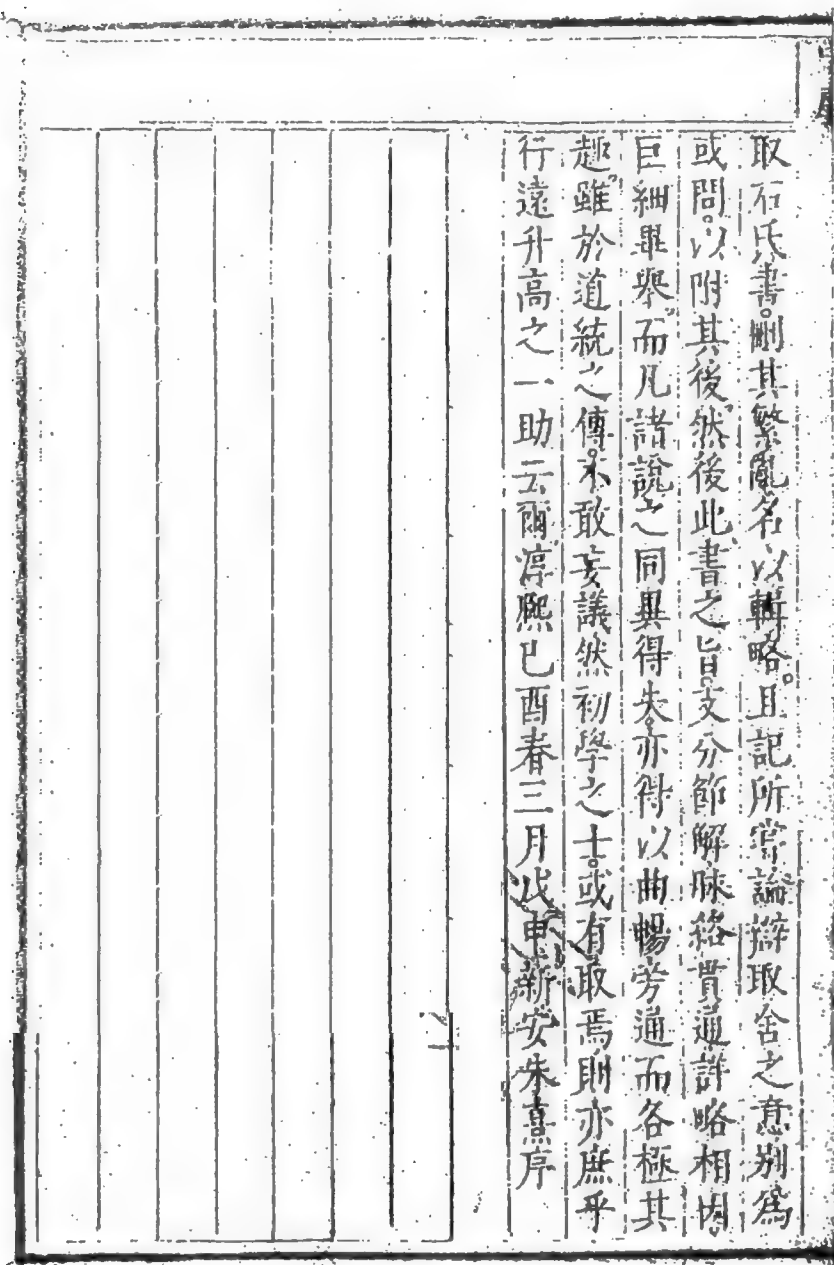 取石氏書。刪其繁亂名以輯略。且記所嘗論辯取舍之意別為
或問。以附其後。然後此書之旨。支分節解脉絡貫通詳略相因。
巨細畢舉。而凡諸說之同異得失。亦得以曲暢旁通而各極其
趣。雖於道統之傳。不敢妄議然初學之士。或有取焉則亦庶乎
行遠升高之一助云爾淳熙己酉春三月戊申新安朱熹序